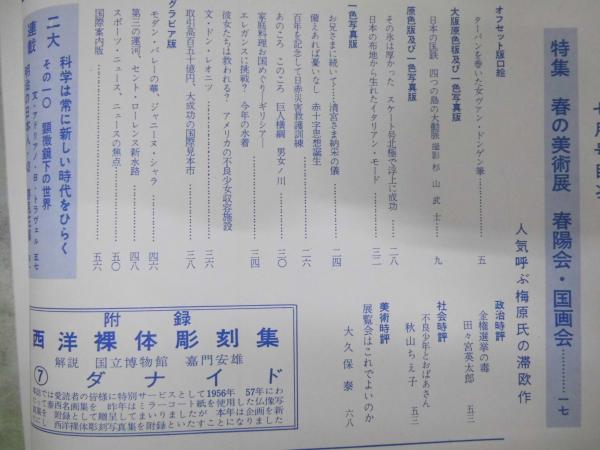 七月号目次
特集 春の美術展 春陽会・国画会…………一七
人気呼ぶ梅原氏の滞欧作
オフセット版口絵
ターバンを巻いた女ヴァン・ドンゲン筆……五
大版原色版及び一色写真版
日本の国鉄 四つの島の大動脈 撮影 杉山武士……九
原色版及び一色写真版
その氷は厚かった スケート号北極で浮上に成功……二八
日本の布地から生れたイタリアン・モード……三二
一色写真版
お兄さまに続いて……清宮さま納采の儀……二四
備えあれば憂いなし 赤十字思想誕生
百年を記念して日赤災害救護訓練……二六
あのころ このころ 巨人横綱 男女ノ川……三〇
家庭料理お国めぐり―ギリシア―
エレガンスに挑戦? 今年の水着……三四
彼女たちは救われる? アメリカの不良少女収容施設
文・ドン・レオニッ……三六
取引高百五十億円、大成功の国際見本市……三八
グラビア版
モダン・バレーの華、ジャニーヌ・シャラ……四六
第三の運河、セント・ローレンス新水路……四八
スポーツ・ニュース、ニュースの焦点……五〇
国際案内版……五六
政治時評
金権選挙の毒
田々宮英太郎 五三
社会時評
不良少年とおばあさん
秋山ちえ子 五三
美術時評
展覧会はこれでよいのか
大久保泰 六八
二大
連載
科学は常に新しい時代をひらく
その一〇 顕微鏡下の世界
文・アドリアノ・B・トラヴェル 五七
附録
西洋裸体彫刻集
解説 国立博物館 嘉門安雄
⑦ ダナイド
本誌では愛読者の皆様に特別サービスとして1956年 57年にわ
たって泰西名画集を 昨年はミラーコート紙を使用した仏像写
真集を 附録として贈呈してまいりましたが 本年は企画も新
たに 西洋裸体彫刻写真集を附録といたすことになりました